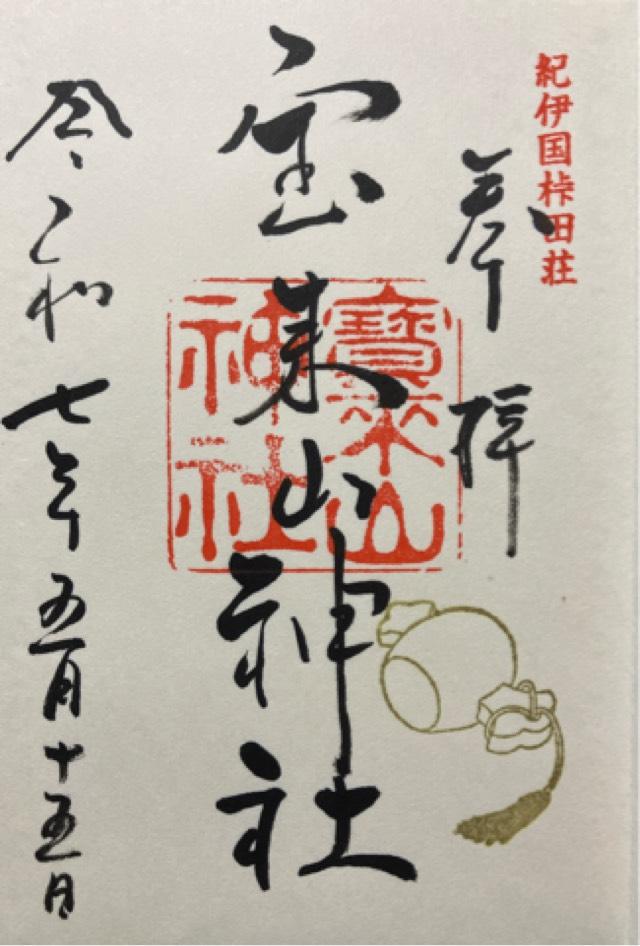 紀伊国桛田荘
奉拝
宝来山神社
寶来山
神社
令和七年五月十五日